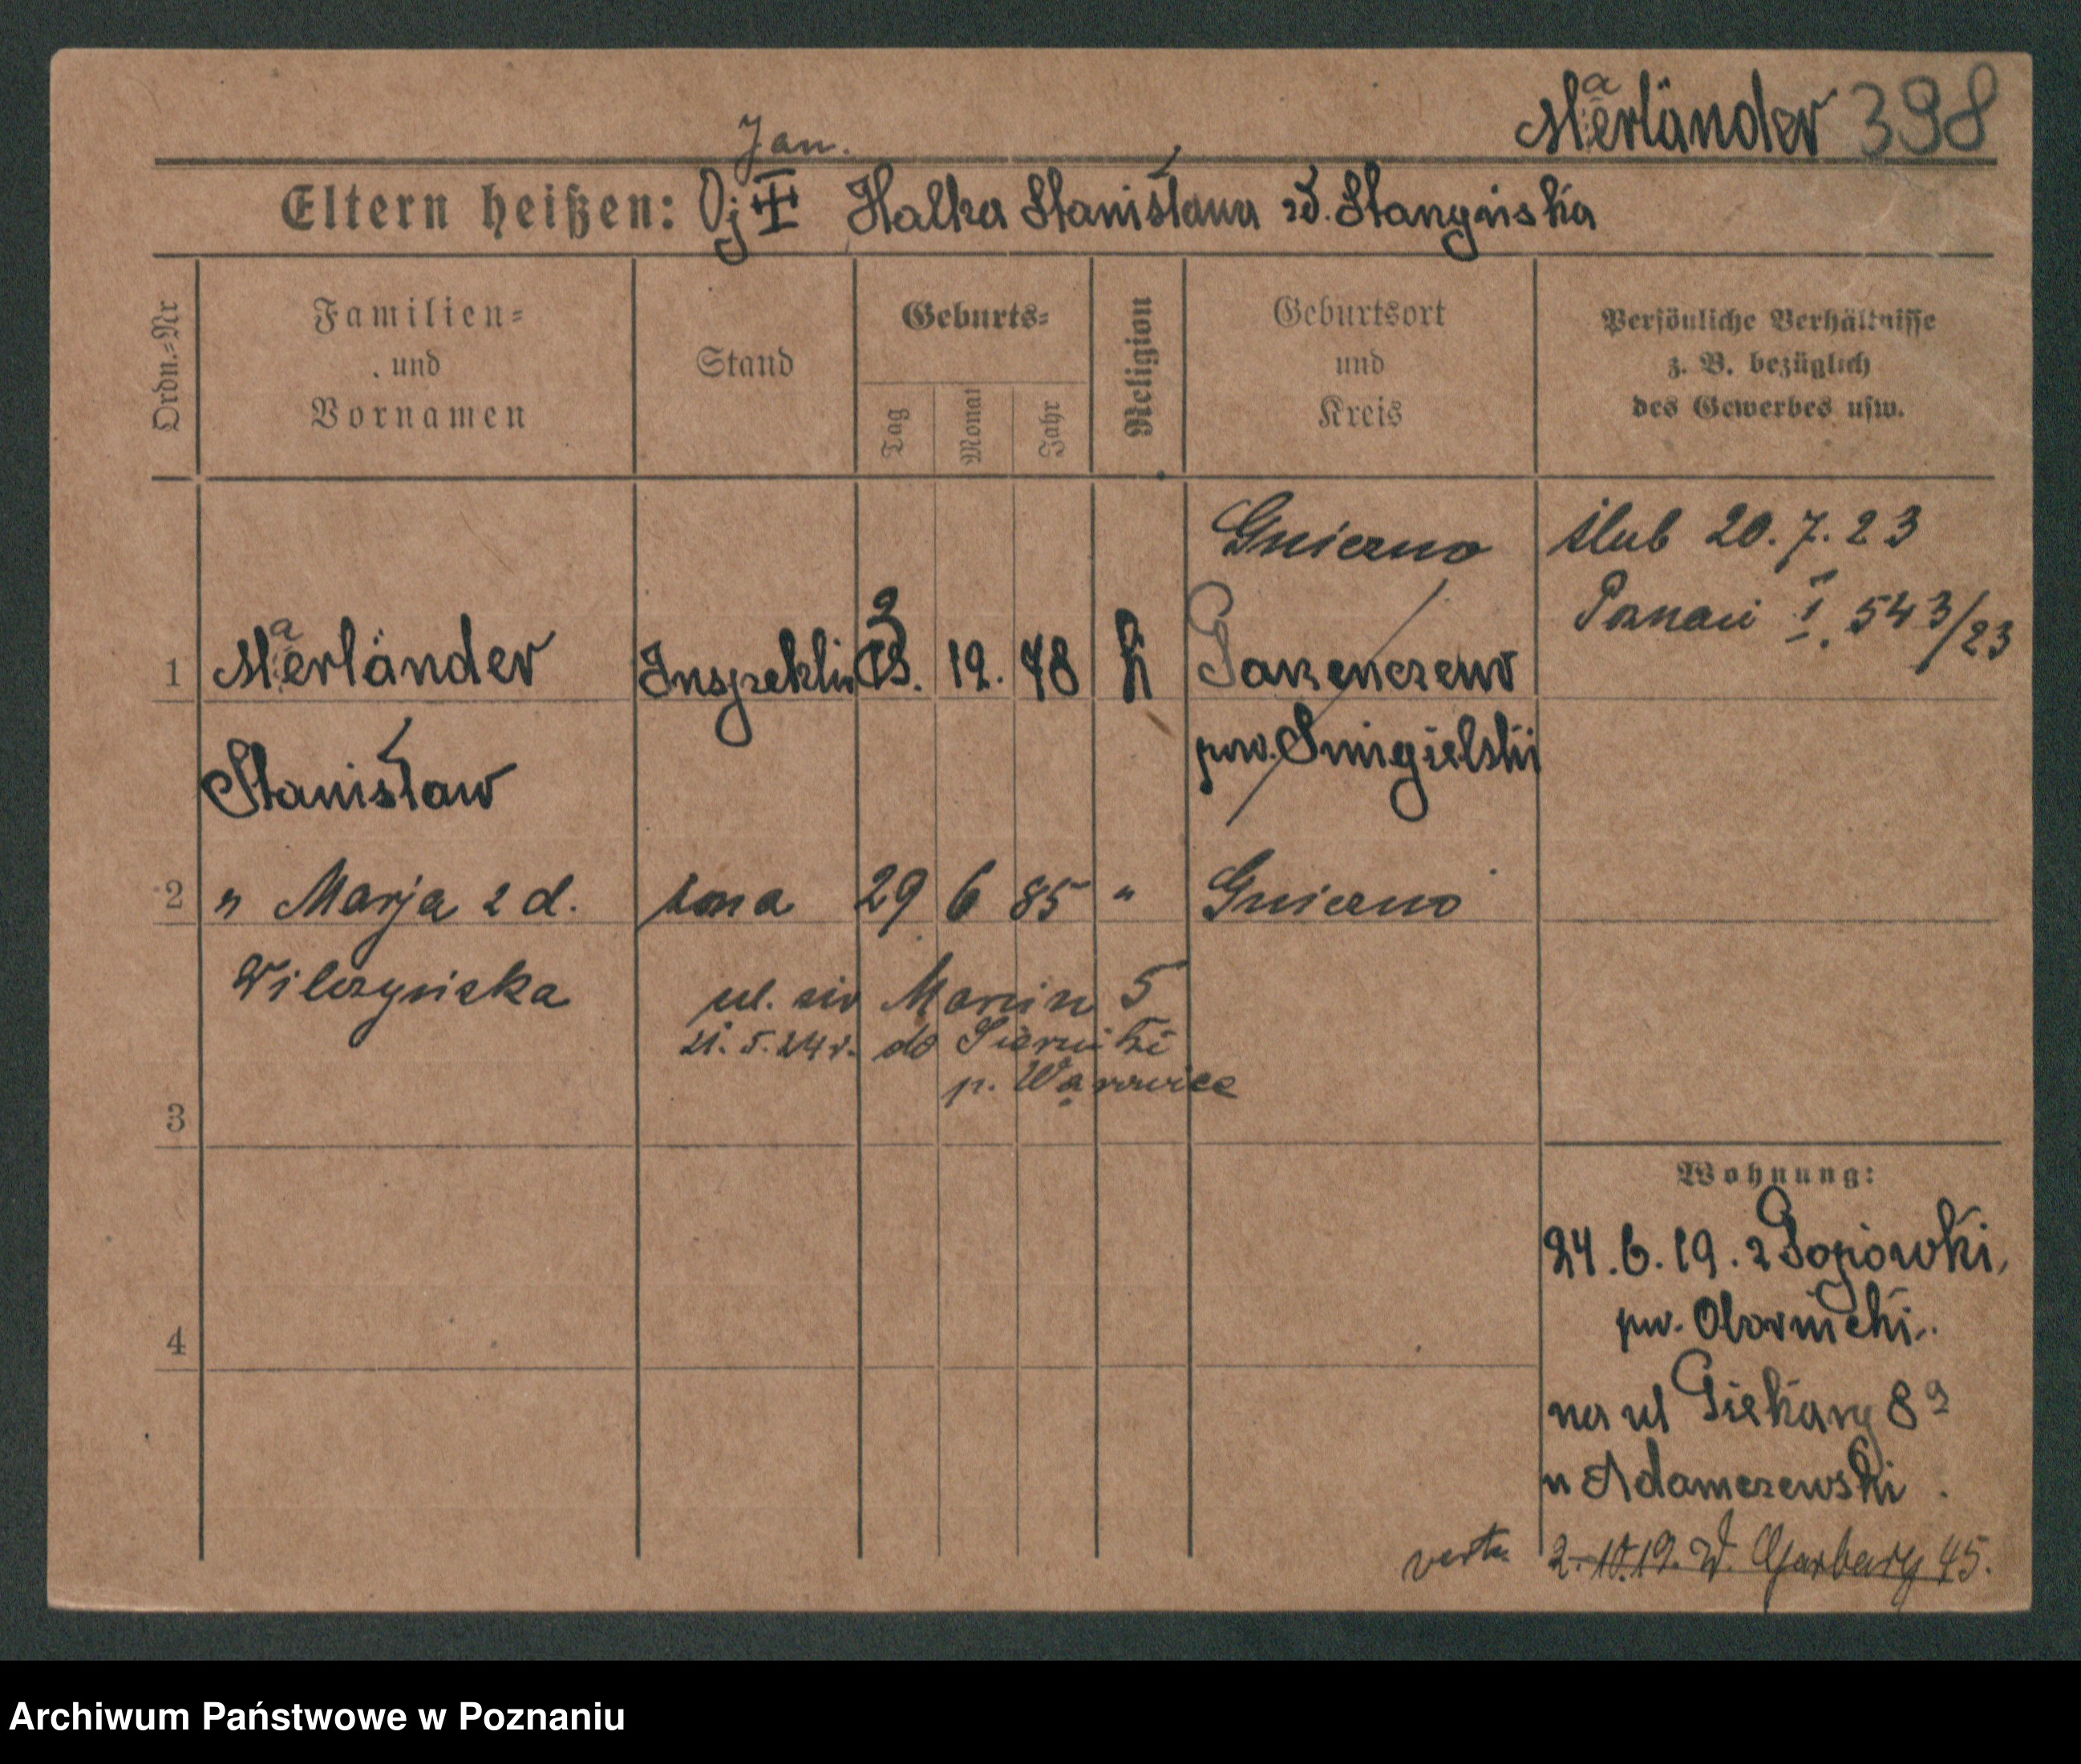 Märländer 398
Jan.
Eltern heißen: Oj ‡ Matka Stanisława zd. Stangriska
Ordn.=Nr
Familien=
und
Vornamen
Stand
Geburts=
Tag
Monat
Jahr
Religion
Geburtsort
und
Kreis
Persönliche Verhältnisse
z. B. bezüglich
des Gewerbes usw.
Gniezno
ślub 20. 7. 23
Poznań I. 543/23
1 Märländer Inspektor 12. 78 k
pow. Śmigielski
Stanisław
2 " Marja z d. żona 29 6 85 " Gniezno
Wilczyńska
ul. św Marcin 5
21. 5. 24 r. do
p.
3
Wohnung:
24. 6. 19. z Popówki,
pw. Obornicki.
4
na ul Piekary 8
u Adamczewski.
2. 10. 19. W. Garbary 45.
Archiwum Państwowe w Poznaniu